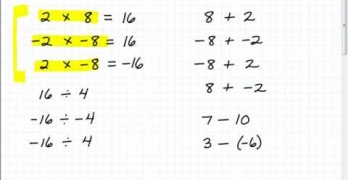 2 × 8 = 16
-2 × -8 = 16
2 × -8 = -16
16 ÷ 4
-16 ÷ -4
-16 ÷ 4
8 + 2
-8 + -2
-8 + 2
8 + -2
7 - 10
3 - (-6)